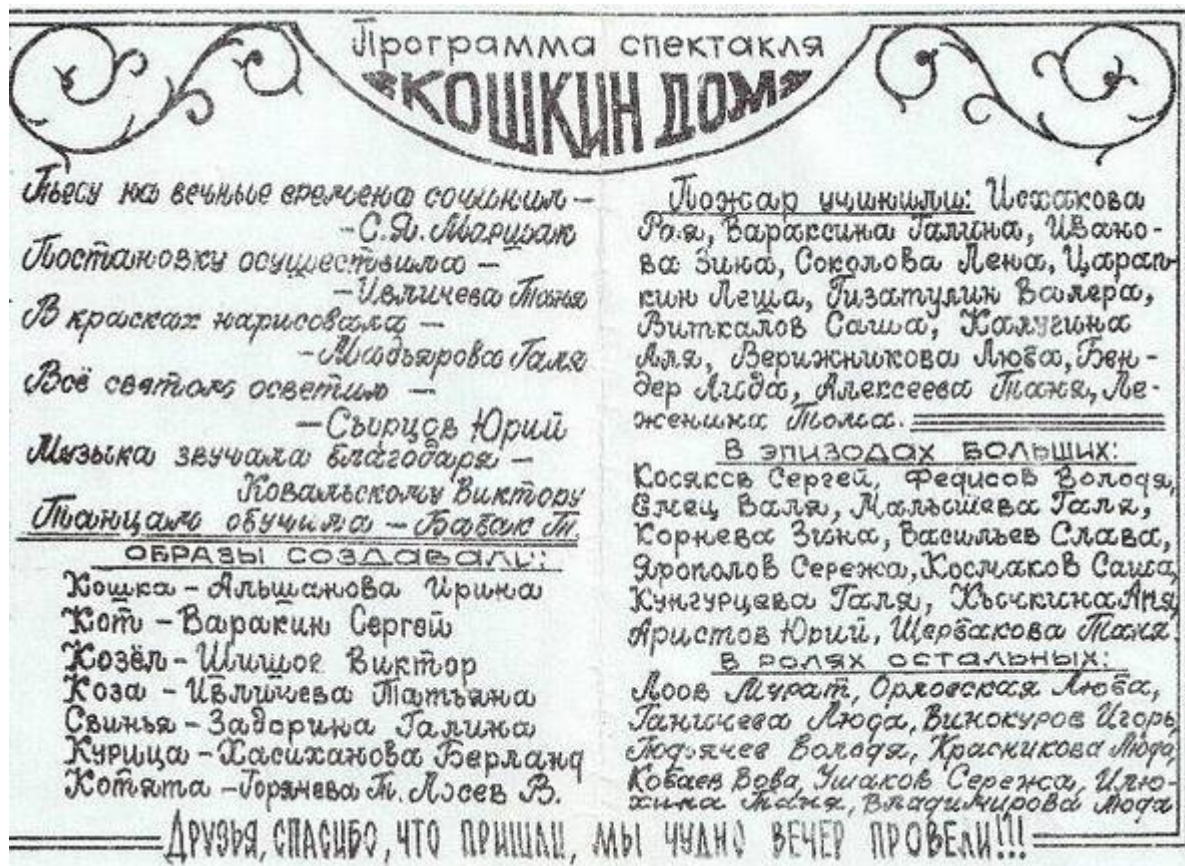 Программа спектакля
"КОШКИН ДОМ"
Пьесу на вечные времена сочинил –
– С.Я. Маршак
Постановку осуществила –
– Ивличева Таня
В красках нарисовала –
– Мадьярова Галя
Всё светом осветил –
– Сырцов Юрий
Музыка звучала благодаря –
Ковальскому Виктору
Танцам обучила – Бабак Т.
ОБРАЗЫ СОЗДАВАЛИ:
Кошка – Альшанова Ирина
Кот – Варакин Сергей
Козёл – Шишов Виктор
Коза – Ивличева Татьяна
Свинья – Задорина Галина
Курица – Хасиханова Берланд
Котята – Горячева Т. Лосев В.
Пожар учинили: Исхакова
Рая, Вараксина Галина, Ивано-
ва Зина, Соколова Лена, Царап-
кин Леша, Гизатулин Валера,
Виткалов Саша, Калугина
Аля, Верижникова Люба, Бен-
дер Лида, Алексеева Таня, Ле-
женина Тома.
В ЭПИЗОДАХ БОЛЬШИХ:
Косяков Сергей, Федисов Володя,
Емец Валя, Малышева Галя,
Корнева Зина, Васильев Слава,
Ярополов Сережа, Космаков Саша,
Кунгурцева Галя, Кычкина Аня,
Аристов Юрий, Щербакова Таня.
В РОЛЯХ ОСТАЛЬНЫХ:
Лоов Мурат, Орловская Люба,
Ганичева Люда, Винокуров Игорь,
Подьячев Володя, Красникова Люда,
Кобаев Вова, Ушаков Сережа, Илю-
хина Таня, Владимирова Люда
ДРУЗЬЯ, СПАСИБО, ЧТО ПРИШЛИ, МЫ ЧУДНО ВЕЧЕР ПРОВЕЛИ!!!